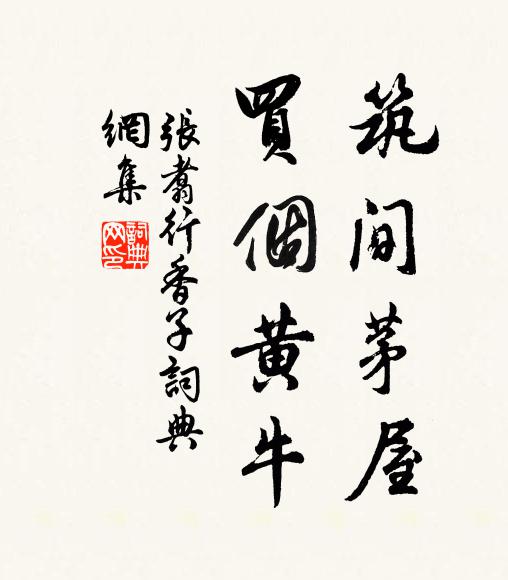 筑間茅屋
買個黃牛
張翥行香子詞典
網集
詞典網印